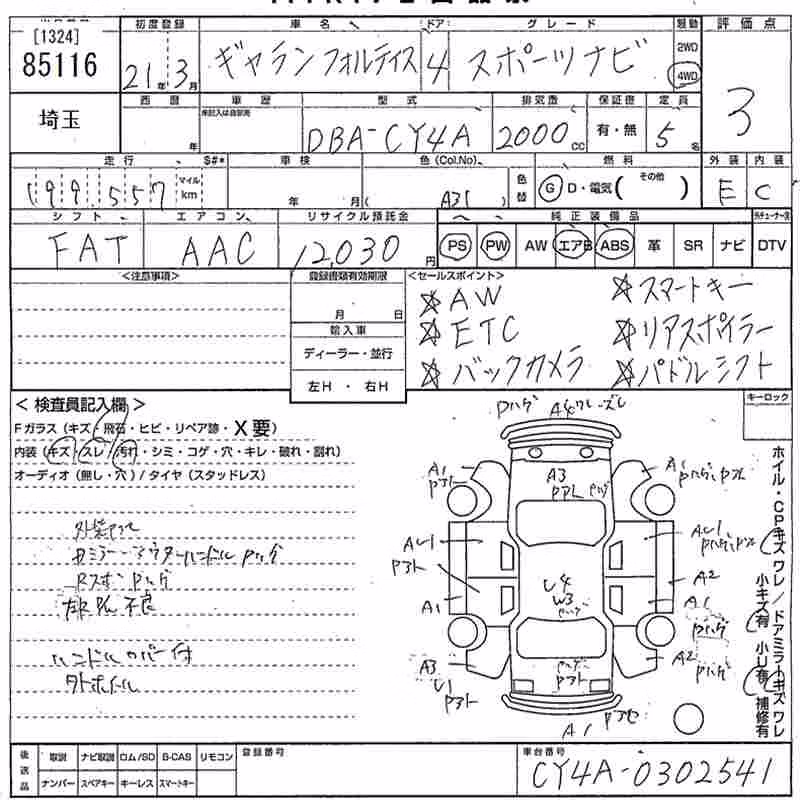 [1324]
85116
埼玉
初度登録
21年3月
車名
ギャランフォルティス
ドア
4
グレード
スポーツナビ
駆動
2WD
4WD
評価点
3
西暦
年
車歴
未記入は自家用
型式
DBA-CY4A
排気量
2000cc
保証書
有・無
定員
5名
走行
199,557
S#*
マイル
km
車検
年 月(
色(Col.No)
A31
色替
燃料
G D・電気( その他 )
外装
E
内装
C
シフト
FAT
エアコン
AAC
リサイクル預託金
12,030円
純正装備品
PS PW AW エアB ABS 革 SR ナビ DTV
<注意事項>
登録書類有効期限
月 日
輸入車
ディーラー・並行
左H ・ 右H
<セールスポイント>
☆AW ☆スマートキー
☆ETC ☆リアスポイラー
☆バックカメラ ☆パドルシフト
< 検査員記入欄 >
Fガラス(キズ・飛石・ヒビ・リペア跡・X要)
内装(キズ・スレ・汚れ・シミ・コゲ・穴・キレ・破れ・割れ)
オーディオ(無し・穴)/タイヤ(スタッドレス)
Rスポ Pハゲ
不良
ハンドルカバー付
キーロック
Pハゲ
A1
A3
A1
A2
A1
A1
U4
W3
A3
U1
A2
A1
ホイル・CPキズ ワレ/ドアミラーキズ ワレ
小キズ有 小U有 補修有
後送品
取説 ナビ取説 ロム/SD B-CAS リモコン
ナンバー スペアキー キーレス スマートキー
登録番号
車台番号
CY4A-0302541